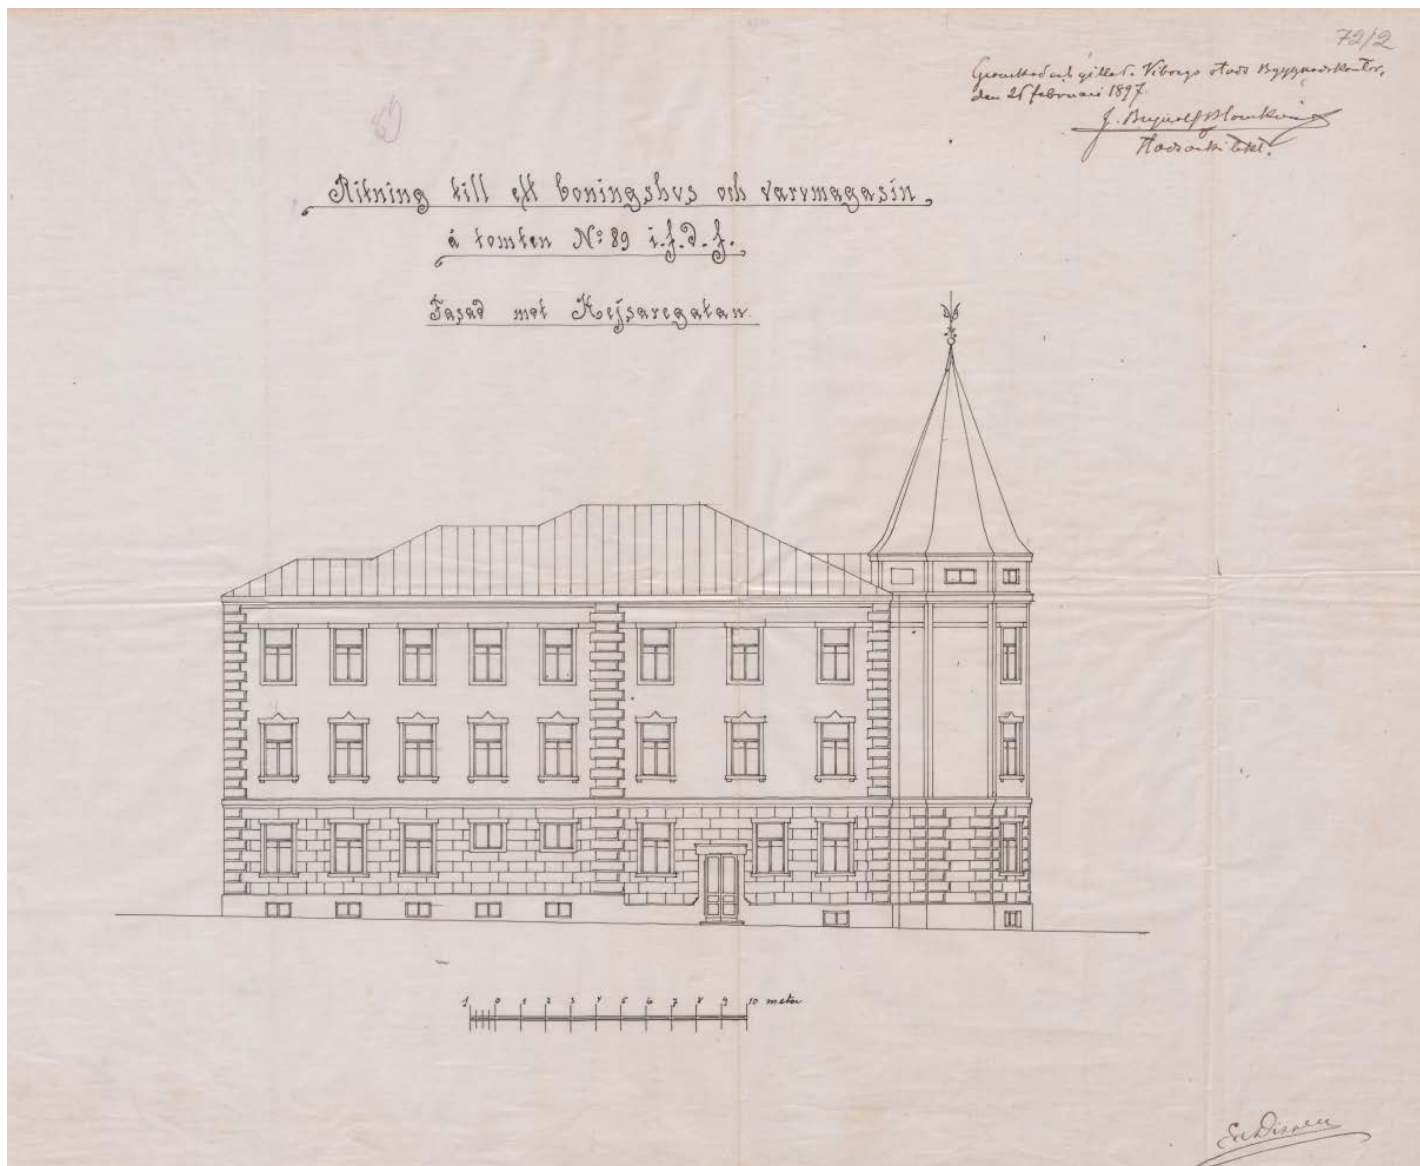 72/2
Granskad och gillad. Viborgs stads Byggnadskontor,
den 26 februari 1897.
J. Brynolf Blomkvist
Stadsarkitekt.
Ritning till ett boningshus och varumagasin
å tomten No: 89 i. f. d. f.
Fasad mot Kejsaregatan.
1 0 1 2 3 4 5 6 7 8 9 10 meter
Ed Dippell